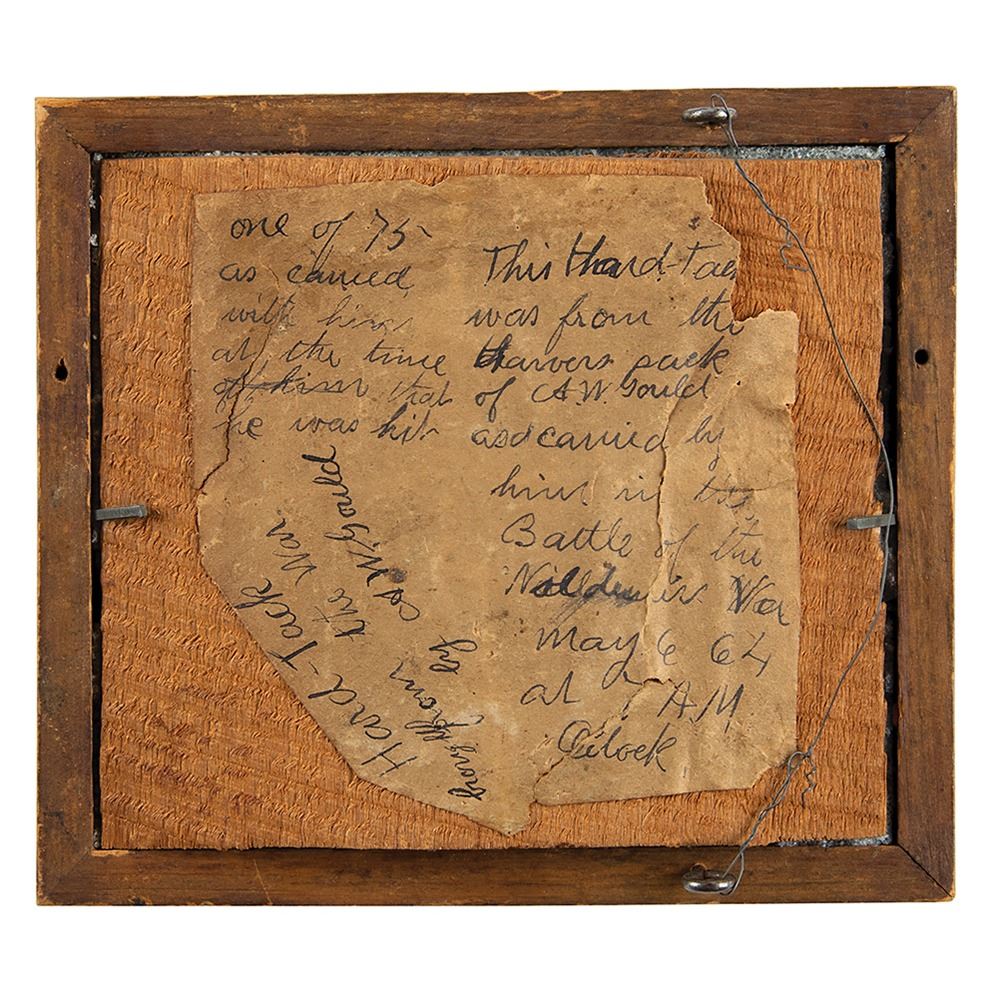 This Hard-Tac
was from the
Havers sack
of C.A.W. Gould
as carried by
him in the
Battle of the
Wildernis War
May 6 64
at 7 AM
Oclock
one of 75
as carried
with him
at the time
of him that
he was hit
Hard-Tack
from the War
brought by C.A.W. Gould